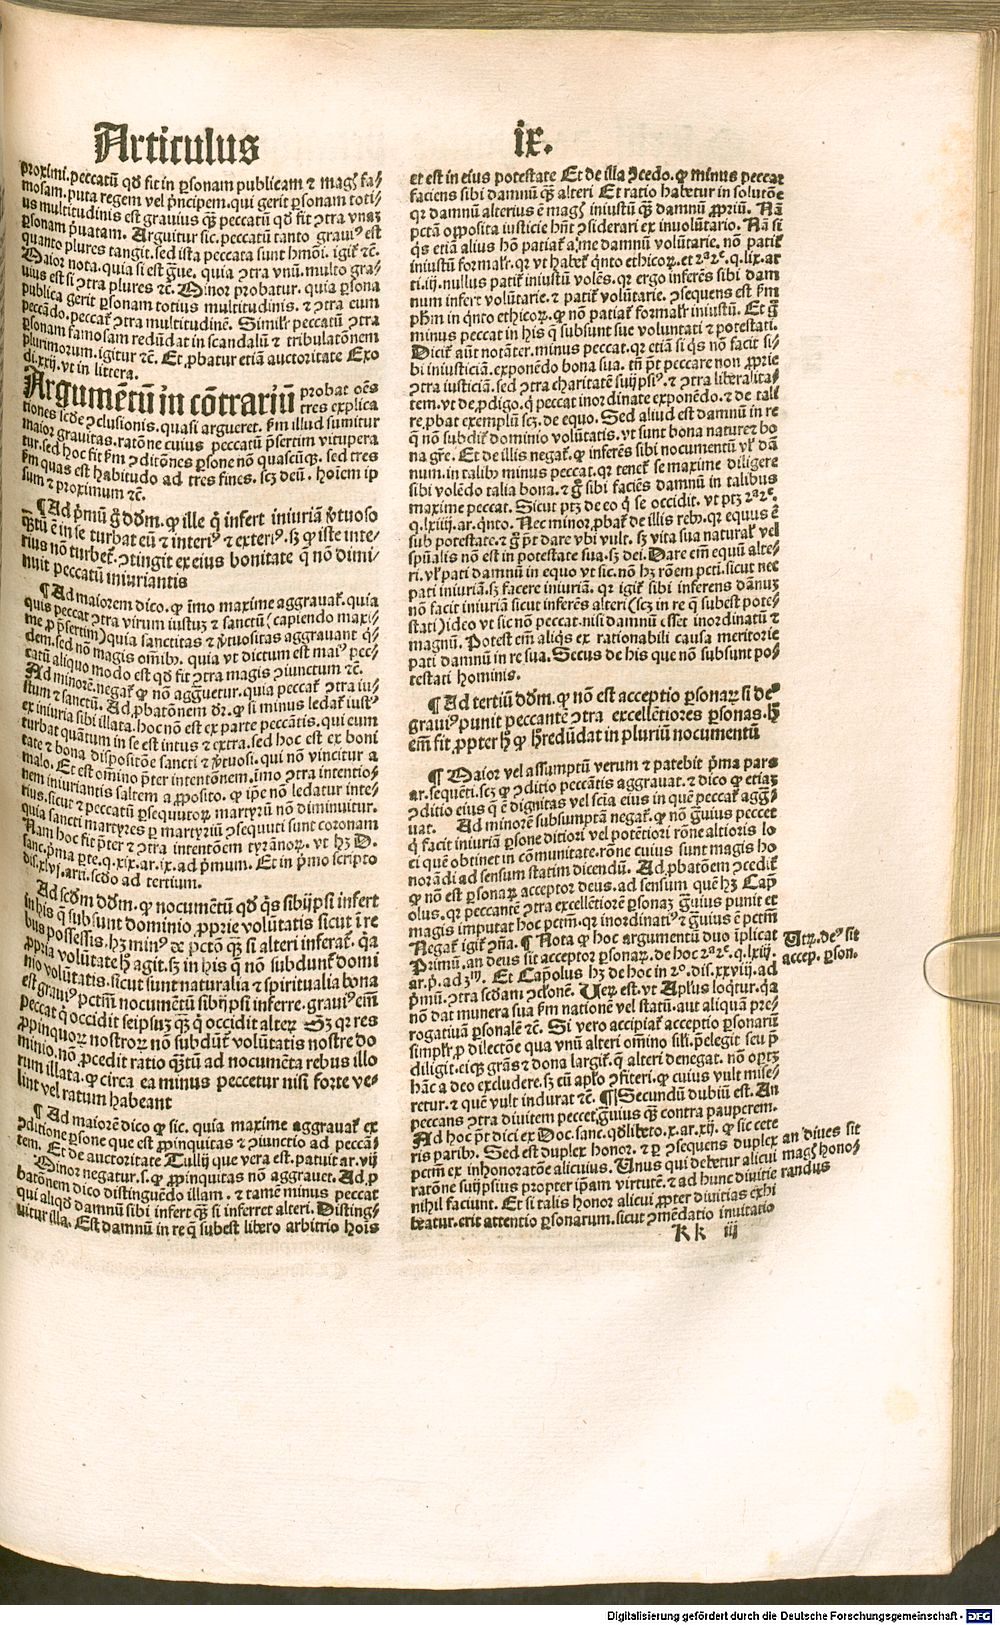 Articulus ix.
proximi.peccatũ qđ fit in ꝑsonam publicam ⁊ magꝭ fa⸗
mosam.puta regem vel p̃ncipem.qui gerit ꝑsonam toti⸗
us multitudinis est grauius q̃ꝫ peccatũ qđ fit ↄtra vnaꝫ
ꝑsonam p̃uatam. Arguitur sic.peccatũ tanto grauiꝰ est
quanto plures tangit.sed ista peccata sunt hm̃õi.igit̃ ⁊c̃.
Maior nota.quia si est g̃ue. quia ↄtra vnũ.multo gra⸗
uius est si ↄtra plures ⁊c̃. Minor probatur. quia ꝑsona
publica gerit ꝑsonam totius multitudinis. ⁊ ↄtra eum
peccãdo.peccat̃ ↄtra multitudinẽ. Similr̃ peccatũ ↄtra
ꝑsonam famosam redũdat in scandalũ ⁊ tribulatõnem
plurimorum.igitur ⁊c̃. Et ꝓbatur etiã auctoritate Exo
di.xxij.vt in littera.
Argumẽtũ in cõtrariũ probat oẽs
tres explica
tiones scđe ↄclusionis.quasi argueret. ẜm illud sumitur
maior grauitas.ratõne cuius peccatũ p̃sertim vitupera
tur.sed hoc fit ẜm ↄditõnes ꝑsone nõ quascũqꝫ. sed tres
ẜm quas est habitudo ad tres fines. scꝫ deũ. hoĩem ip
sum ⁊ proximum ⁊c̃.
¶ Ad p̃mũ g̃ dd̃m.ꝙ ille q̃ infert iniuriã ṽtuoso
q̃ꝫtũ ẽ in se turbat eũ ⁊ interiꝰ ⁊ exteriꝰ.sꝫ ꝙ iste inte⸗
rius nõ turbet̃.ↄtingit ex eius bonitate q̃ nõ dimi⸗
nuit peccatũ iniuriantis
¶ Ad maiorem dico.ꝙ ĩmo maxime aggrauat̃.quia
quis peccat ↄtra virum iustuꝫ ⁊ sanctũ (capiendo maxi⸗
me ꝓ p̃sertim) quia sanctitas ⁊ ṽtuositas aggrauant q̃⸗
dem.sed nõ magis om̃ibꝫ. quia vt dictum est maiꝰ pec⸗
catũ aliquo modo est qđ fit ↄtra magis ↄiunctum ⁊c̃.
Ad minorẽ.negat̃ ꝙ nõ agg̃uetur.quia peccat̃ ↄtra iu⸗
stum ⁊ sanctũ. Ad ꝓbatõnem dr̃.ꝙ si minus ledat̃ iustꝰ
ex iniuria sibi illata.hoc nõ est ex parte peccãtis.qui eum
turbat quãtum in se est intus ⁊ extra.sed hoc est ex boni
tate ⁊ bona dispositõe sancti ⁊ ṽtuosi.qui nõ vincitur a
malo. Et est omino p̃ter intentõnem.ĩmo ↄtra intentio⸗
nem iniuriantis saltem a ꝓposito. ꝙ ip̃e nõ ledatur inte⸗
rius.sicut ⁊ peccatũ ꝑsequutoꝝ martyrũ nõ diminuitur.
quia sancti martyres ꝑ martyriũ ↄsequuti sunt coronam
Nam hoc fit p̃ter ⁊ ↄtra intentõem tyrãnoꝝ. vt hꝫ D.
sanc.p̃ma ꝑte.q.xix.ar.ix.ad p̃mum. Et in p̃mo scripto
dis.xlvj.arti.scđo ad tertium.
Ad scđm dd̃m.ꝙ nocumẽtũ qđ q̃s sibijpsi infert
in his q̃ subsunt dominio ꝓprie volũtatis sicut ĩ re
bus possessis.hꝫ minꝰ de pctõ q̃ꝫ si alteri inferat̃.q̃a
ꝓpria volũtate hꝭ agit.sꝫ in his q̃ nõ subdunt̃ domi
nio volũtatis.sicut sunt naturalia ⁊ spiritualia bona
est grauiꝰ pctm̃ nocumẽtũ sibijpsi inferre.grauiꝰ em̃
peccat q̃ occidit seipsuꝫ q̃ꝫ q̃ occidit alteꝝ Sꝫ qꝛ res
ꝓpinquoꝝ nostroꝝ nõ subdũt̃ volũtatis nostre do
minio.nõ ꝓcedit ratio q̃ꝫtũ ad nocumẽta rebus illo
rum illata.ꝙ circa ea minus peccetur nisi forte ve⸗
lint vel ratum habeant
¶ Ad maiorẽ dico ꝙ sic. quia maxime aggrauat̃ ex
ↄditione ꝑsone que est ꝓpinquitas ⁊ ↄiunctio ad peccã⸗
tem. Et de auctoritate Tullij que vera est.patuit ar.vij
Minor negatur.s.ꝙ ꝓpinquitas nõ aggrauet. Ad ꝓ
batõnem dico distinguẽdo illam. ⁊ tamẽ minus peccat
qui aliqđ damnũ sibi infert q̃ꝫ si inferret alteri. Disting⸗
uitur illa. Est damnũ in re q̃ subest libero arbitrio hoĩs
et est in eius potestate Et de illa ↄcedo.ꝙ minus peccat
faciens sibi damnũ q̃ꝫ alteri Et ratio habetur in solutõe
qꝛ damnũ alterius ẽ magꝭ iniustũ q̃ꝫ damnũ ꝓpriũ. Nã
pctã opposita iusticie hñt ↄsiderari ex inuolũtario. Nã si
q̃s etiã alius hõ patiat̃ a me damnũ volũtarie. nõ patit̃
iniustũ formalr̃.qꝛ vt habet̃ q̃nto ethicoꝝ.et 2ª2ᵉ.q.lix.ar
ti.iij.nullus patit̃ iniustũ volẽs.qꝛ ergo inferẽs sibi dam
num infert volũtarie.⁊ patit̃ volũtarie. ↄsequens est ẜm
ph̃m in q̃nto ethicoꝝ.ꝙ nõ patiat̃ formalr̃ iniustũ. Et g̃
minus peccat in his q̃ subsunt sue voluntati ⁊ potestati.
Dicit̃ aũt notãter.minus peccat.qꝛ etiã si q̃s nõ facit si⸗
bi iniusticiã.exponẽdo bona sua. tñ p̃t peccare non ꝓprie
ↄtra iusticiã.sed ↄtra charitatẽ suijpsiꝰ.⁊ ↄtra liberalita⸗
tem.vt de ꝓdigo.q̃ peccat inordinate exponẽdo.⁊ de tali
re.ꝓbat exemplũ scꝫ.de equo. Sed aliud est damnũ in re
q̃ nõ subdit̃ dominio volũtatis.vt sunt bona nature ⁊ bo
na gr̃e. Et de illis negat̃.ꝙ inferẽs sibi nocumentũ vl̃ dã
num.in talibꝫ minus peccat.qꝛ tenet̃ se maxime diligere
sibi volẽdo talia bona.⁊ g̃ sibi faciẽs damnũ in talibus
maxime peccat. Sicut ptꝫ de eo q̃ se occidit. vt ptꝫ 2ª2ᵉ.
q.lxiiij.ar.q̃nto. Nec minor ꝓbat̃ de illis rebꝫ.qꝛ equus ẽ
sub potestate.⁊ g̃ p̃t dare vbi vult. sꝫ vita sua naturał vel
spũalis nõ est in potestate sua.sꝫ dei. Dare em̃ equũ alte⸗
ri.vl̃ pati damnũ in equo vt sic.nõ hꝫ rõem pcti.sicut nec
pati iniuriã.sꝫ facere iniuriã. qꝛ igit̃ sibi inferens dãnuꝫ
nõ facit iniuriã sicut inferẽs alteri (scꝫ in re q̃ subest pote⸗
stati) ideo vt sic nõ peccat.nisi damnũ esset inordinatũ ⁊
magnũ. Potest em̃ aliq̃s ex rationabili causa meritorie
pati damnũ in re sua. Secus de his que nõ subsunt po⸗
testati hominis.
¶ Ad tertiũ dd̃m.ꝙ nõ est acceptio ꝑsonaꝝ si deꝰ
grauiꝰ punit peccantẽ ↄtra excellẽtiores ꝑsonas.hꝭ
em̃ fit ꝓpter hꝭ ꝙ hꝭ redũdat in pluriũ nocumentũ
¶ Maior vel assumptũ verum ⁊ patebit p̃ma pars
ar.sequẽti.scꝫ ꝙ ↄditio peccãtis aggrauat.⁊ dico ꝙ etiaꝫ
ↄditio eius q̃ ẽ dignitas vel scĩa eius in quẽ peccat̃ agg̃⸗
uat. Ad minorẽ subsumptã negat̃.ꝙ nõ g̃uius peccet
q̃ facit iniuriã ꝑsone ditiori vel potẽtiori rõne altioris lo
ci quẽ obtinet in cõmunitate.rõne cuius sunt magis ho
norãdi ad sensum statim dicendũ. Ad ꝓbatõem ↄcedit̃
ꝙ nõ est ꝑsonaꝝ acceptor deus.ad sensum quẽ hꝫ Cap̃
olus.qꝛ peccantẽ ↄtra excellẽtiorẽ ꝑsonaꝫ g̃uius punit et
magis imputat hoc pctm̃.qꝛ inordinatiꝰ ⁊ g̃uius ẽ pctm̃
Negat̃ igit̃ ↄña. ¶ Nota ꝙ hoc argumentũ duo ĩplicat
Primũ.an deus sit acceptor ꝑsonaꝝ.de hoc 2ª2ᵉ.q.lxiij.
ar.p̃.ad 3ᵐ. Et Cap̃olus hꝫ de hoc in 2º.dis.xxviij.ad
p̃mũ.ↄtra scđam ↄclonẽ. Ueꝝ est.vt Aplus loq̃tur.q̃a
nõ dat munera sua ẜm nationẽ vel statũ.aut aliquã pre⸗
rogatiuã ꝑsonalẽ ⁊c̃. Si vero accipiat̃ acceptio ꝑsonarũ
simplr̃.ꝓ dilectõe qua vnũ alteri om̃ino sil̃i.p̃elegit seu p̃
diligit.eiqꝫ gr̃as ⁊ dona largit̃.q̃ alteri denegat. nõ oꝑtꝫ
hãc a deo excludere.sꝫ cũ aplo ↄfiteri.ꝙ cuius vult mise⸗
retur.⁊ quẽ vult indurat ⁊c̃. ¶ Secundũ dubiũ est. An
peccans ↄtra diuitem peccet g̃uius q̃ꝫ contra pauperem.
Ad hoc p̃t dici ex Doc.sanc.qđlibeto.x.ar.xij. ꝙ sic cete
ris paribꝫ. Sed est duplex honor. ⁊ ꝑ ↄsequens duplex
pctm̃ ex inhonoratõe alicuius. Unus qui debetur alicui
ratõne suijpsius propter ip̃am virtutẽ.⁊ ad hunc diuitie
nihil faciunt. Et si talis honor alicui ꝓpter diuitias exhi
beatur.erit attentio ꝑsonarum.sicut ↄmẽdatio inuitatio
Utꝝ.deꝰ sit
accep.ꝑson.
an diues sit
magꝭ hono⸗
randus
kk iij
Digitalisierung gefördert durch die Deutsche Forschungsgemeinschaft - DFG